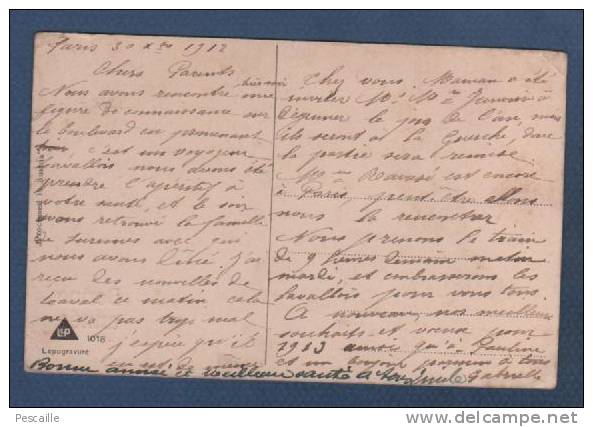 Paris 30 Xbre 1912
Chers Parents
Nous avons rencontré hier soir une
figure de connaissance sur
le boulevard en promenant
c'est un voyageur
lavallois nous avons été
prendre l'apéritif à
votre santé, et le soir
avons retrouvé la famille
de Suresnes avec qui
nous avons été j'ai
reçu des nouvelles de
Laval ce matin cela
ne va pas trop mal
j'espère qu'il
en est de même
Chez vous, Maman a été
inviter Mr Mme à
déjeuner le jour de l'an, mais
ils seront à la Guerche, donc
la partie sera remise.
Mme est encore
à Paris peut-être allons
nous la rencontrer
Nous prenons le train
de 9 heures demain matin
mardi, et embrasserons les
lavallois pour vous tous.
A nouveau, nos meilleurs
souhaits et vœux pour
1913 ainsi qu'à Pauline
et un bonjour à tous
Gabrielle
Bonne année et meilleure santé à tous Emile
L&P
1018
Lapogravure
Pescaille
www.delcampe.net